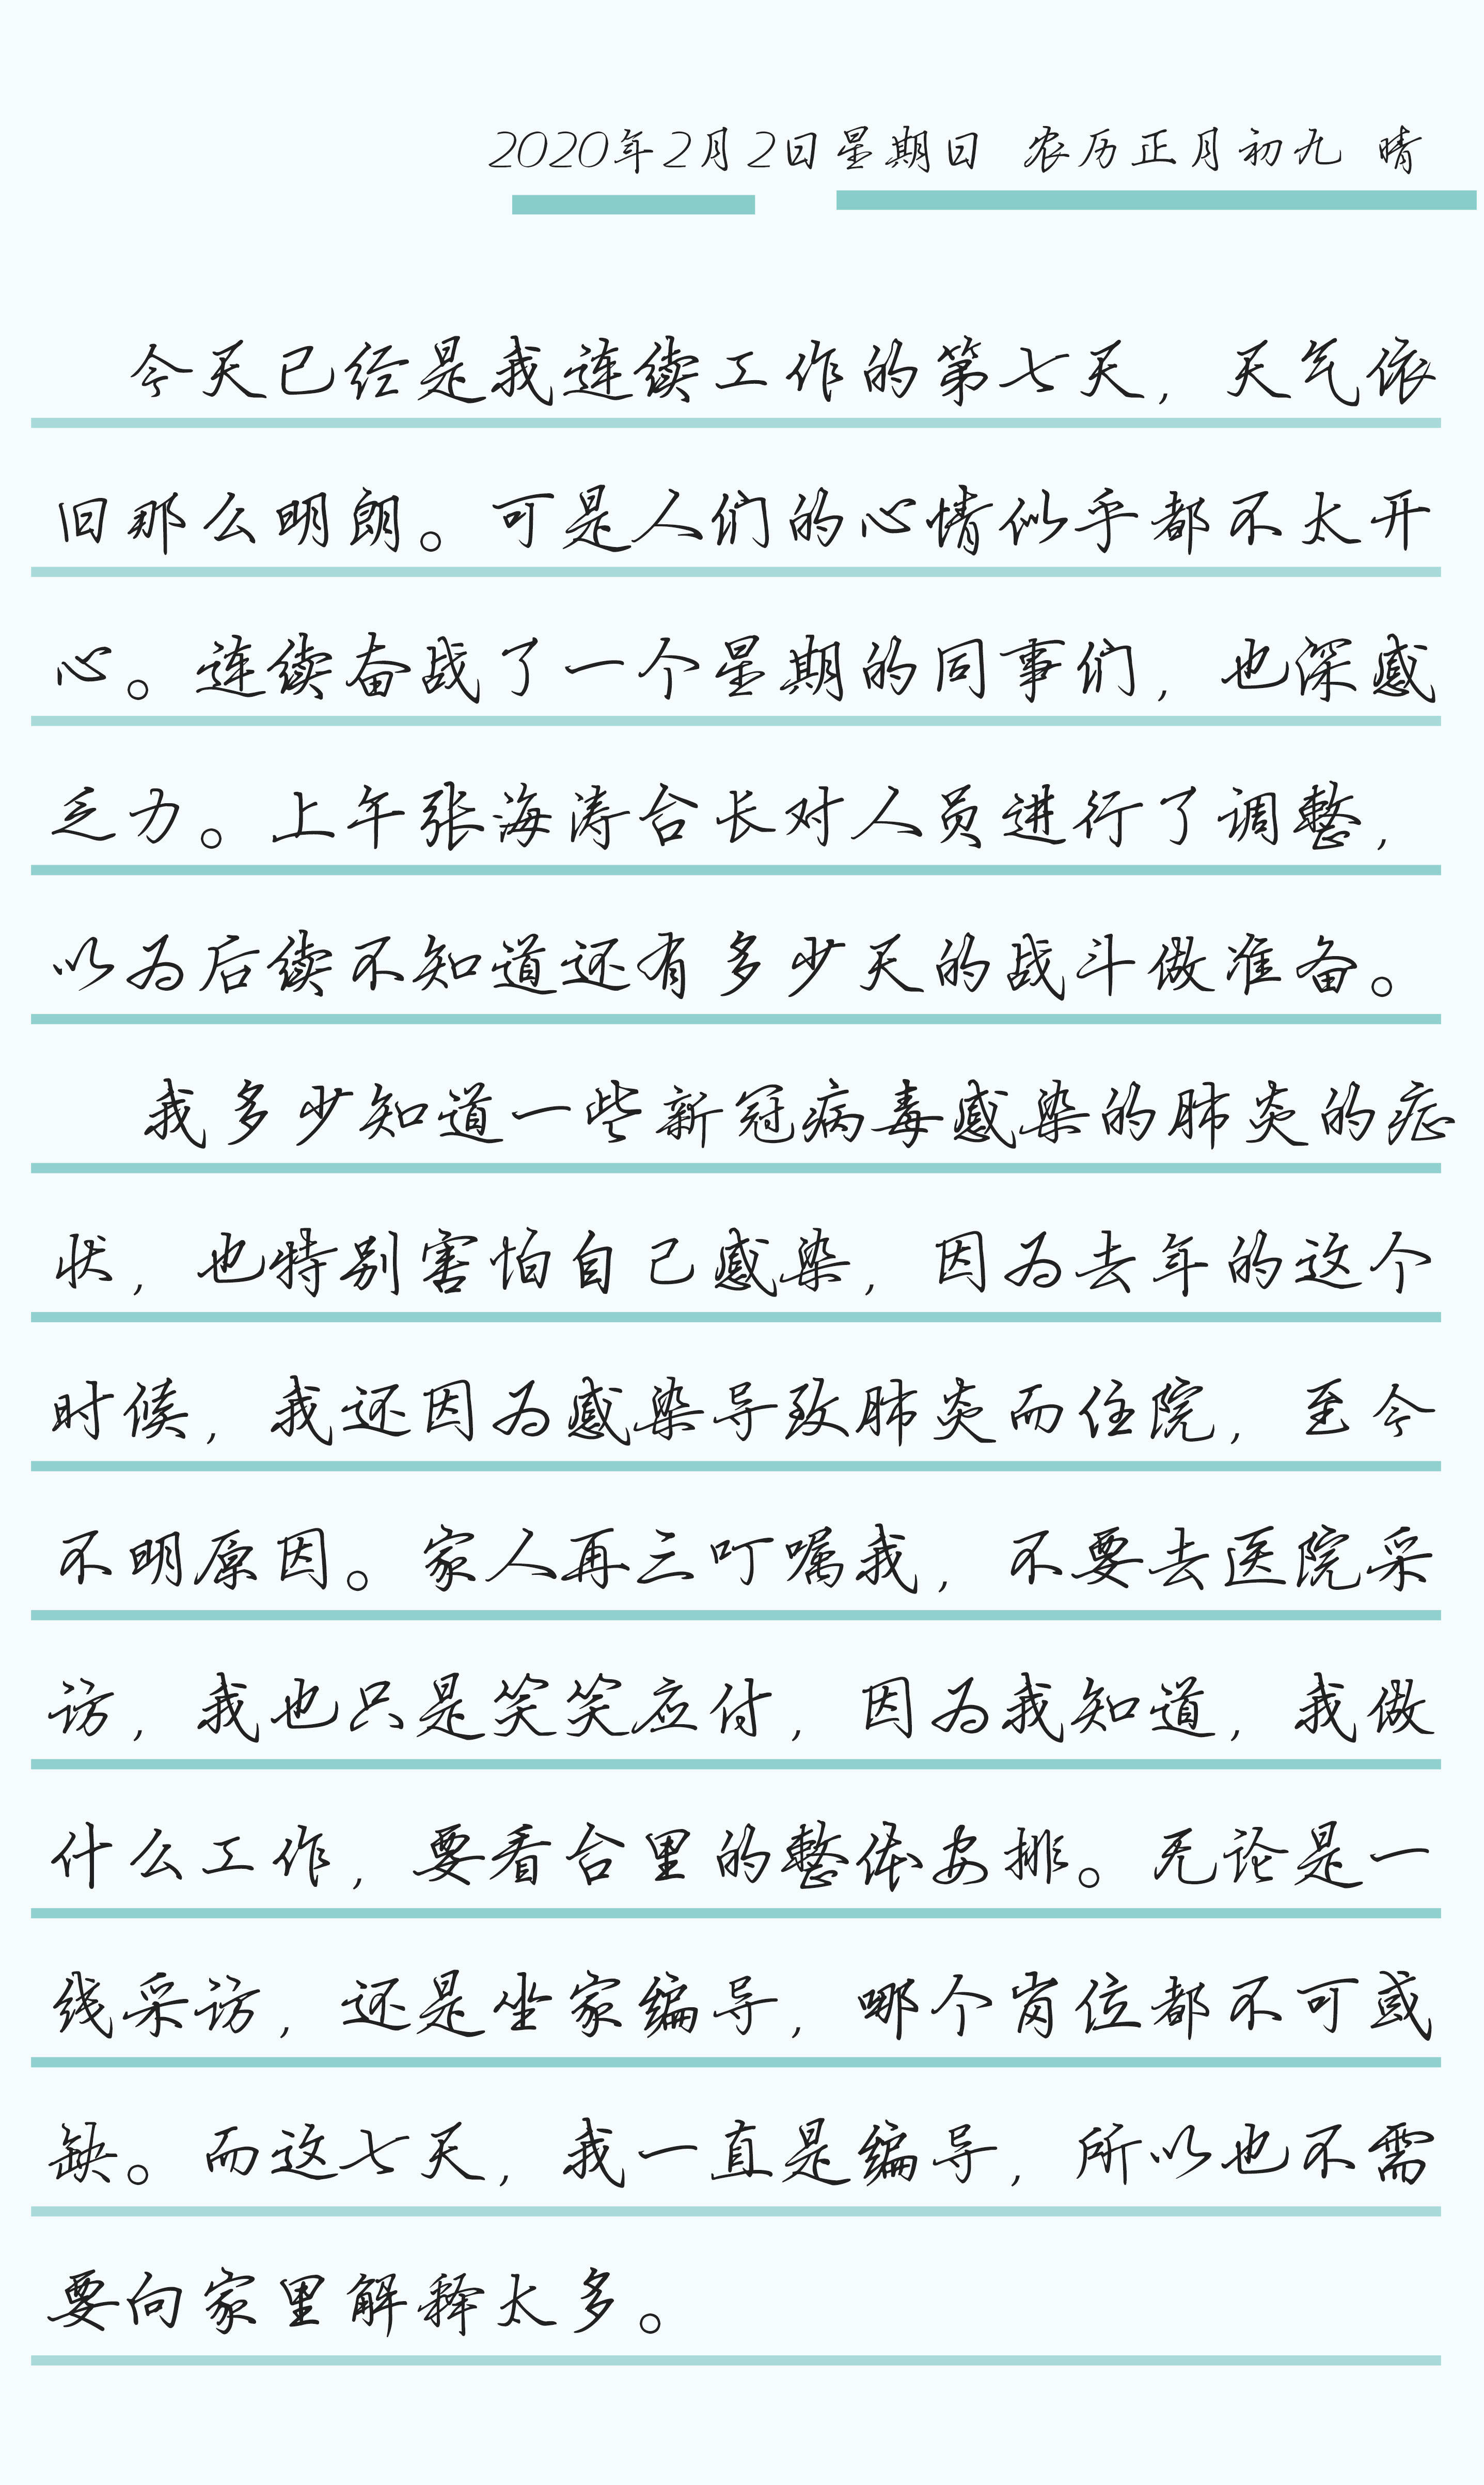 2020年2月2日星期日 农历正月初九 晴
今天已经是我连续工作的第七天，天气依
旧那么明朗。可是人们的心情似乎都不太开
心。连续奋战了一个星期的同事们，也深感
乏力。上午张海涛台长对人员进行了调整，
以为后续不知道还有多少天的战斗做准备。
我多少知道一些新冠病毒感染的肺炎的症
状，也特别害怕自己感染，因为去年的这个
时候，我还因为感染导致肺炎而住院，至今
不明原因。家人再三叮嘱我，不要去医院采
访，我也只是笑笑应付，因为我知道，我做
什么工作，要看台里的整体安排。无论是一
线采访，还是坐家编导，哪个岗位都不可或
缺。而这七天，我一直是编导，所以也不需
要向家里解释太多。